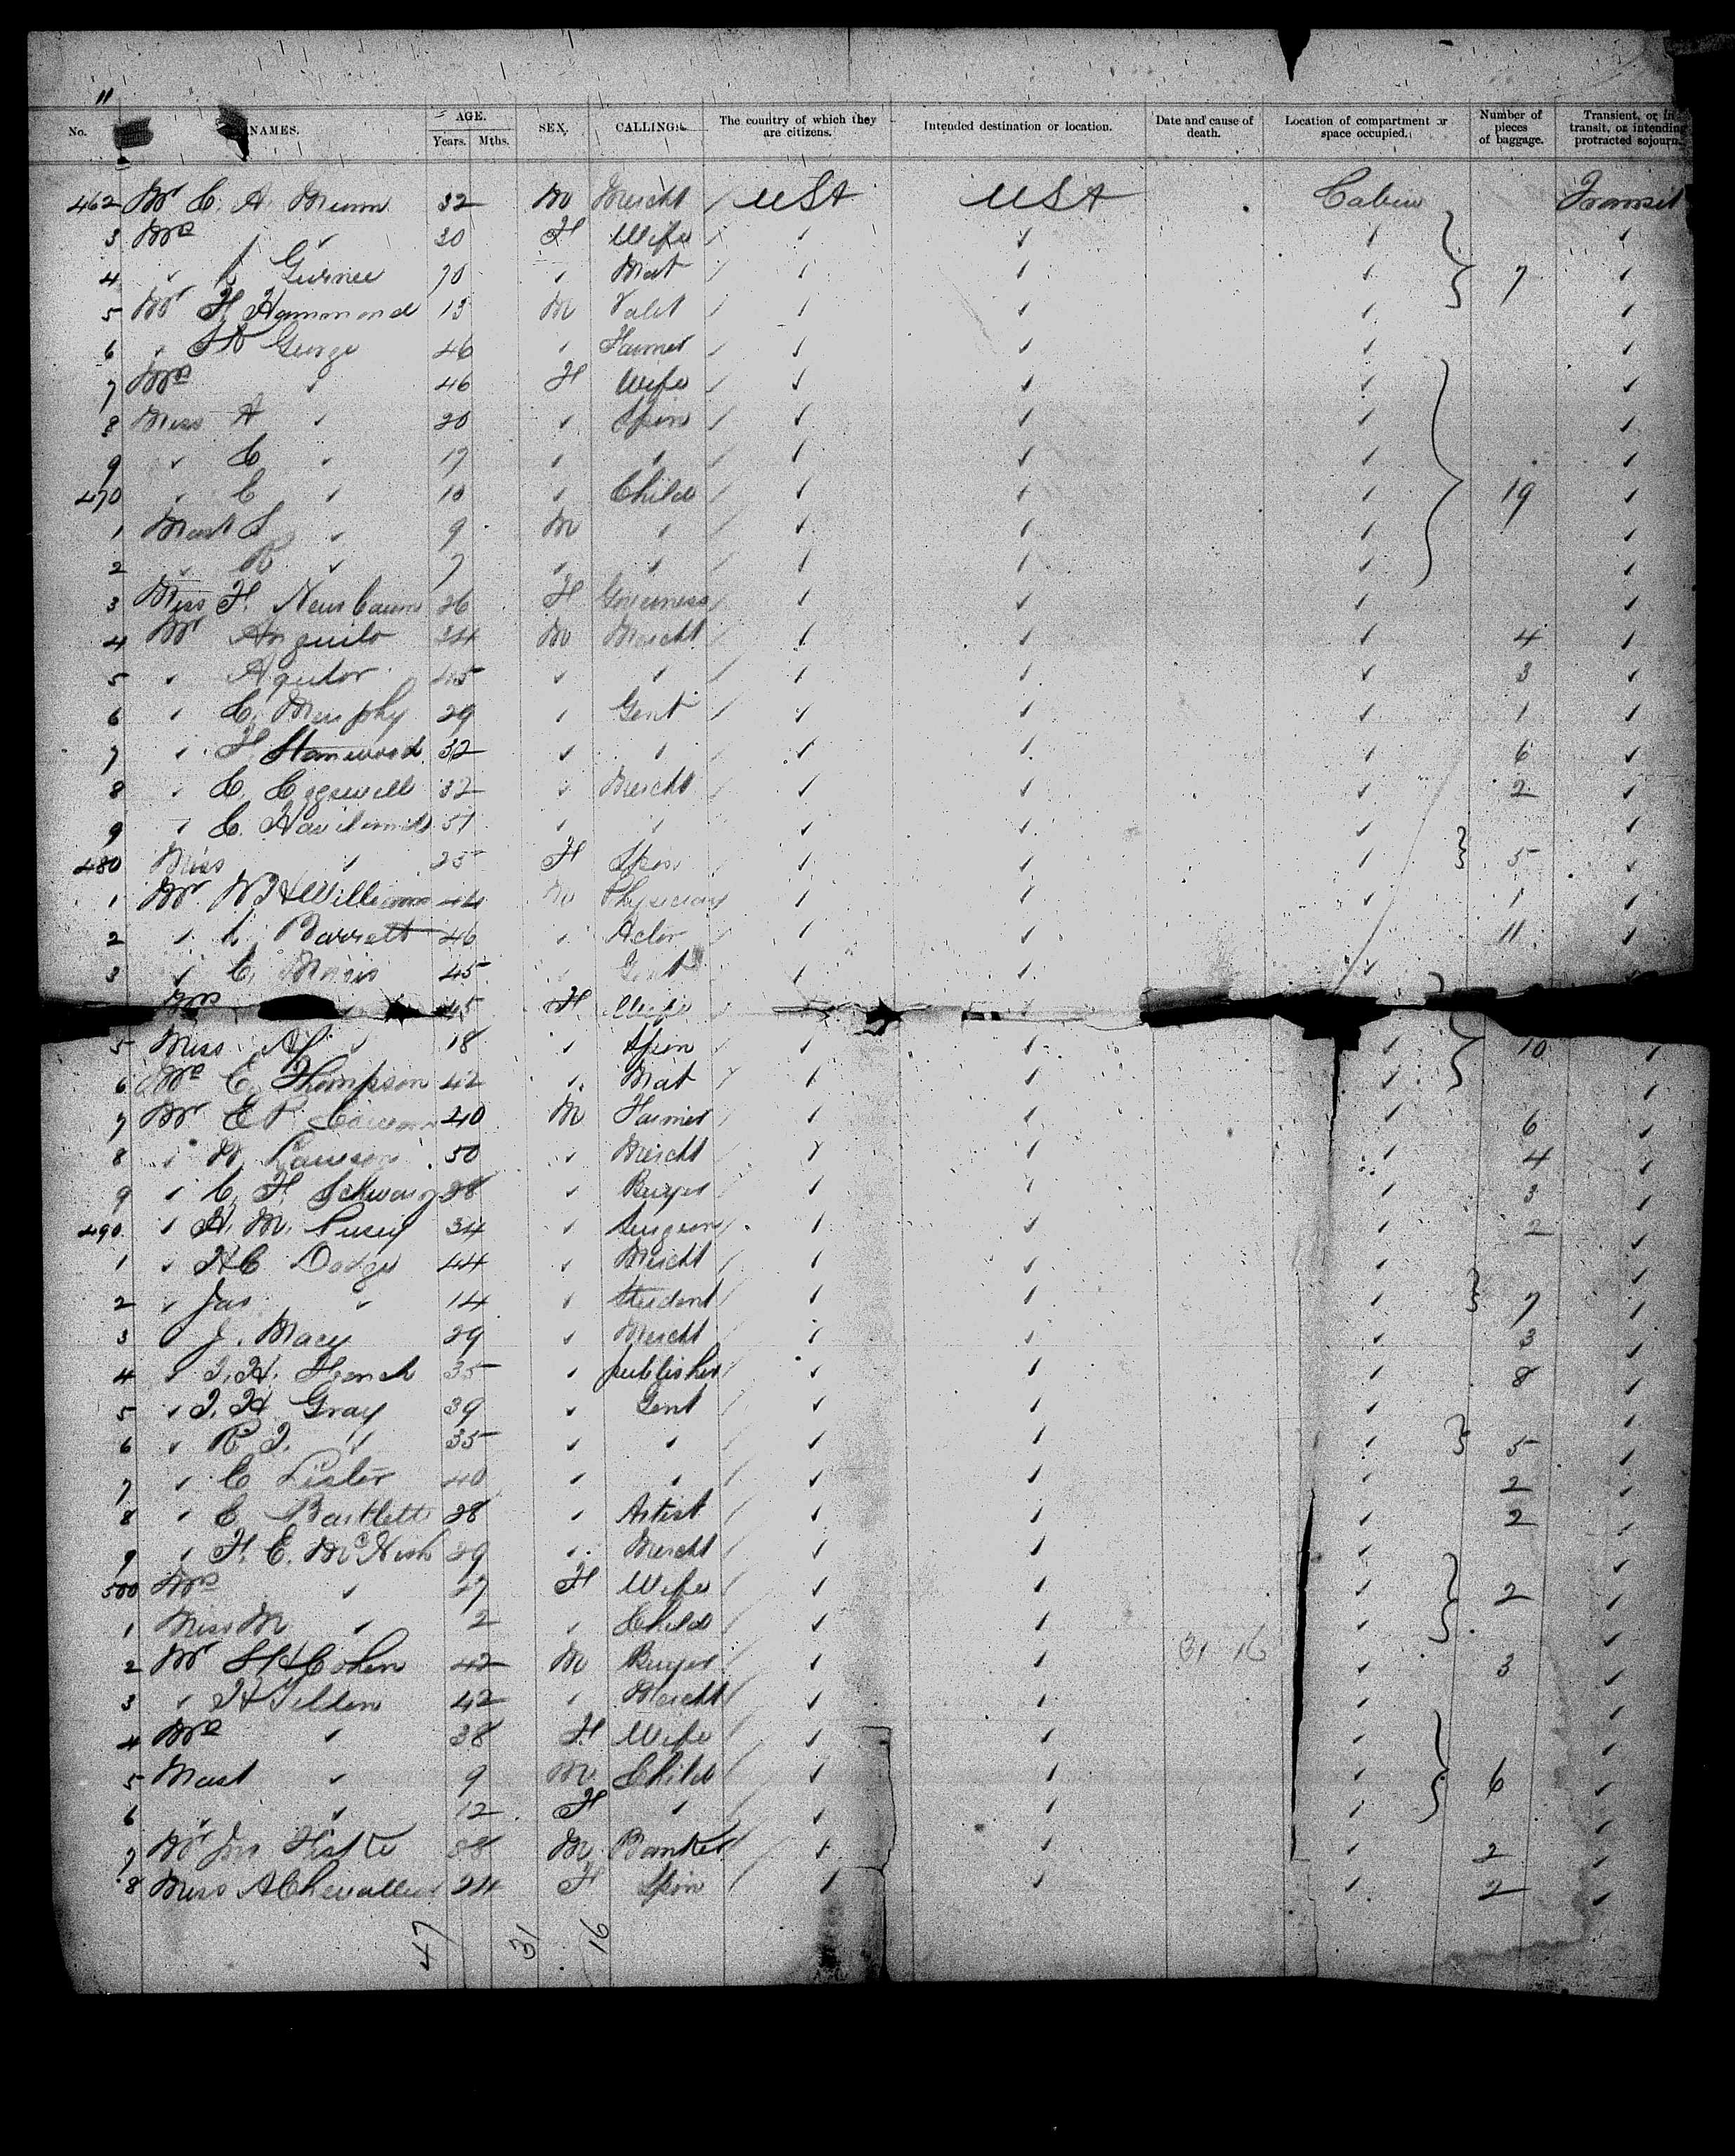 11
No. NAMES. AGE. Years. Mths. SEX. CALLING. The country of which they are citizens. Intended destination or location. Date and cause of death. Location of compartment or space occupied. Number of pieces of baggage. Transient, or in transit, or intending protracted sojourn.
462 Mr C. A. Munn 32 M Mercht / USA USA Cabin Transit
3 Mrs ✓ 30 F Wife / ✓ ✓ ✓ ✓
4 ✓ Gurnee 70 ✓ Mat / ✓ ✓ ✓ 7 ✓
5 Mr F. Hammond 13 M Valet / ✓ ✓ ✓ ✓
6 ✓ George 46 ✓ Farmer / ✓ ✓ ✓ ✓
7 Mrs ✓ 46 F Wife / ✓ ✓ ✓ ✓
8 Miss A ✓ 20 ✓ Spin / ✓ ✓ ✓ ✓
9 ✓ C ✓ 17 ✓ ✓ / ✓ ✓ ✓ ✓
470 ✓ C ✓ 10 ✓ Child / ✓ ✓ ✓ 19 ✓
1 Mast S ✓ 9 M ✓ / ✓ ✓ ✓ ✓
2 ✓ R ✓ 7 ✓ ✓ / ✓ ✓ ✓ ✓
3 Miss F. Newbaum 26 F Governess / ✓ ✓ ✓ ✓
4 Mr Anguilo 34 M Mercht ✓ ✓ ✓ 4 ✓
5 ✓ Aguilar 45 ✓ ✓ / ✓ ✓ ✓ 3 ✓
6 ✓ C. Murphy 29 ✓ Gent / ✓ ✓ ✓ 1 ✓
7 ✓ F Stanwood 32 ✓ ✓ ✓ ✓ ✓ 6 ✓
8 ✓ C. Cogswell 32 ✓ Mercht ✓ ✓ ✓ 2 ✓
9 ✓ C. Haviland 51 ✓ ✓ ✓ ✓ ✓ ✓
480 Miss ✓ 25 F Spin ✓ ✓ ✓ 5 ✓
1 Mr W H Williams 44 M Physician ✓ ✓ ✓ 1 ✓
2 ✓ L Barrett 46 ✓ Actor ✓ ✓ 11 ✓
3 ✓ C. Morris 45 Gent ✓ ✓ ✓
Mrs 45 F Wife
5 Miss A ✓ 18 ✓ Spin ✓ ✓ ✓ 10 ✓
6 Mrs C. Thompson 42 ✓ Mat / ✓ ✓ ✓ ✓
7 Mr E P 40 M Farmer ✓ ✓ ✓ 6 ✓
8 ✓ W Lawson 50 ✓ Mercht ✓ ✓ ✓ 4 ✓
9 ✓ C. F. Schwarz 28 ✓ Buyer ✓ ✓ ✓ 3 ✓
490 ✓ H. M. 34 ✓ Surgeon ✓ ✓ ✓ 2 ✓
1 ✓ H C Dodge 44 ✓ Mercht ✓ ✓ ✓ ✓
2 ✓ Jas ✓ 14 ✓ Student ✓ ✓ ✓ 7 ✓
3 ✓ J. Macy 29 ✓ Mercht ✓ ✓ ✓ 3 ✓
4 ✓ J. H. French 35 ✓ publisher ✓ ✓ ✓ 8 ✓
5 ✓ J. H Gray 39 ✓ Gent / ✓ ✓ ✓ ✓
6 ✓ R J. ✓ 35 ✓ ✓ / ✓ ✓ ✓ 5 ✓
7 ✓ C Lister 40 ✓ ✓ / ✓ ✓ ✓ 2 ✓
8 ✓ C Bartlett 28 ✓ Artist / ✓ ✓ ✓ 2 ✓
9 ✓ F. E. McNish 29 ✓ Mercht / ✓ ✓ ✓ ✓
500 Mrs ✓ 27 F Wife / ✓ ✓ ✓ 2 ✓
1 Miss M ✓ 2 ✓ Child / ✓ ✓ ✓ ✓
2 Mr S H Cohen 42 M Buyer / ✓ ✓ 31 16 ✓ 3 ✓
3 ✓ H Tilden 42 ✓ Mercht / ✓ ✓ ✓ ✓
4 Mrs ✓ 38 F Wife / ✓ ✓ ✓ ✓
5 Mast ✓ 9 M Child / ✓ ✓ ✓ 6 ✓
6 ✓ ✓ 12 F ✓ / ✓ ✓ ✓ ✓
7 Mr Jos Fiske 28 M Banker / ✓ ✓ ✓ 2 ✓
8 Miss A Chevallier 24 F Spin / ✓ ✓ ✓ 2 ✓
47 31 16